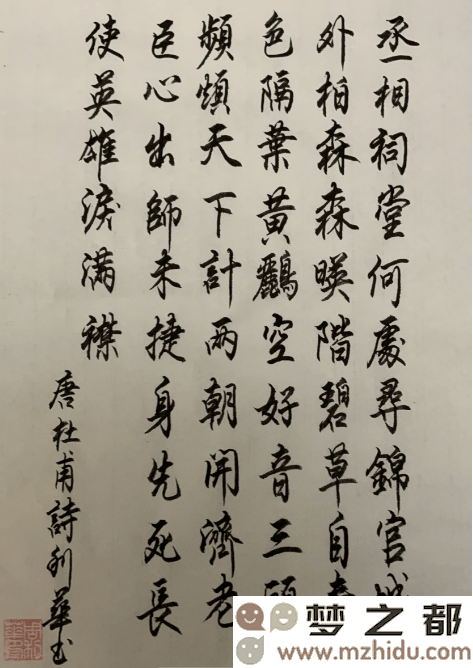 丞相祠堂何處尋錦官城
外柏森森暎階碧草自春
色隔葉黃鸝空好音三顧
頻煩天下計两朝開濟老
臣心出師未捷身先死長
使英雄淚滿襟
唐杜甫詩利華书
梦之都
www.mzhidu.com